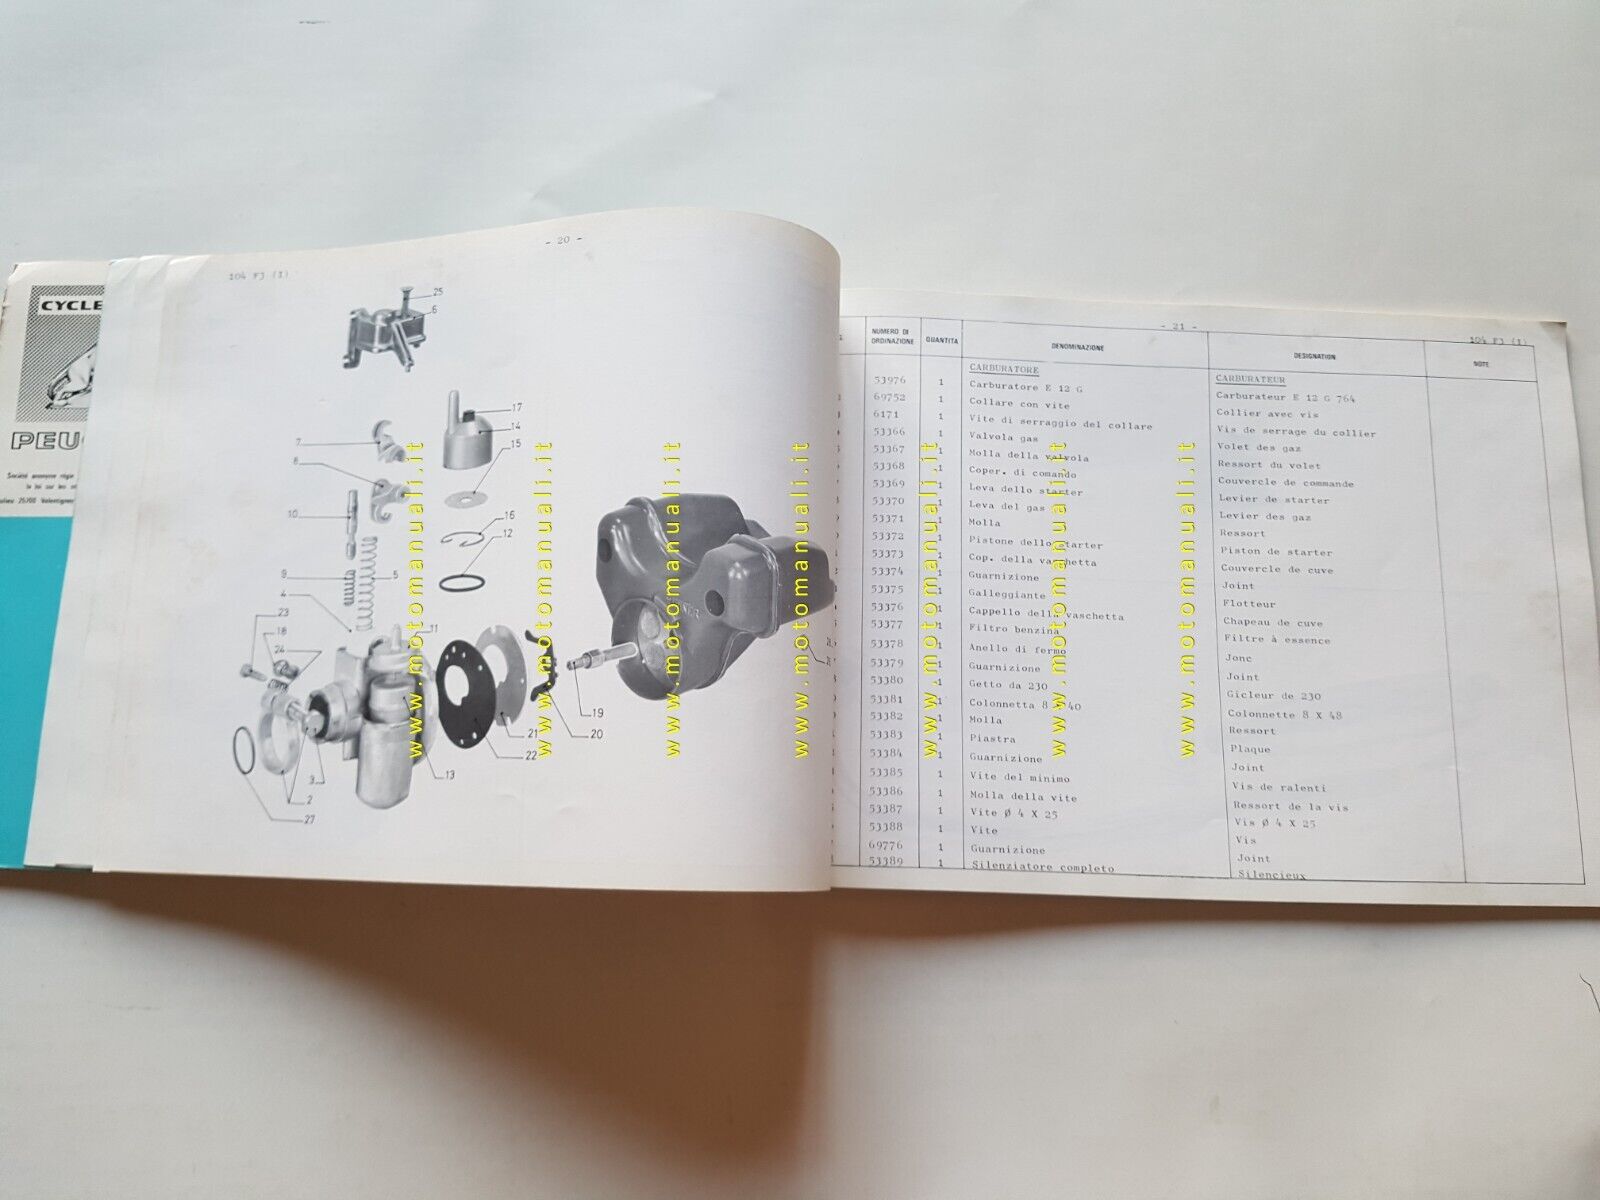 CYCLE
PEU
Société anonyme régie
la loi sur les
25700 Valentigney
- 20 -
104 FJ (I)
25
6
17
14
15
7
8
16
12
10
9
5
4
23
18
24
11
19
20
21
22
13
3
2
27
www.motomanuali.it
www.motomanuali.it
www.motomanuali.it
www.motomanuali.it
www.motomanuali.it
www.motomanuali.it
www.motomanuali.it
- 21 -
104 FJ (I)
NUMERO DI ORDINAZIONE QUANTITA DENOMINAZIONE DESIGNATION NOTE
CARBURATORE CARBURATEUR
53976 1 Carburatore E 12 G Carburateur E 12 G 764
69752 1 Collare con vite Collier avec vis
6171 1 Vite di serraggio del collare Vis de serrage du collier
53366 1 Valvola gas Volet des gaz
53367 1 Molla della valvola Ressort du volet
53368 1 Coper. di comando Couvercle de commande
53369 1 Leva dello starter Levier de starter
53370 1 Leva del gas Levier des gaz
53371 1 Molla Ressort
53372 1 Pistone dello starter Piston de starter
53373 1 Cop. della vaschetta Couvercle de cuve
53374 1 Guarnizione Joint
53375 1 Galleggiante Flotteur
53376 1 Cappello della vaschetta Chapeau de cuve
53377 1 Filtro benzina Filtre à essence
53378 1 Anello di fermo Jonc
53379 1 Guarnizione Joint
53380 1 Getto da 230 Gicleur de 230
53381 1 Colonnetta 8 X 40 Colonnette 8 X 48
53382 1 Molla Ressort
53383 1 Piastra Plaque
53384 1 Guarnizione Joint
53385 1 Vite del minimo Vis de ralenti
53386 1 Molla della vite Ressort de la vis
53387 1 Vite Ø 4 X 25 Vis Ø 4 X 25
53388 1 Vite Vis
69776 1 Guarnizione Joint
53389 1 Silenziatore completo Silencieux